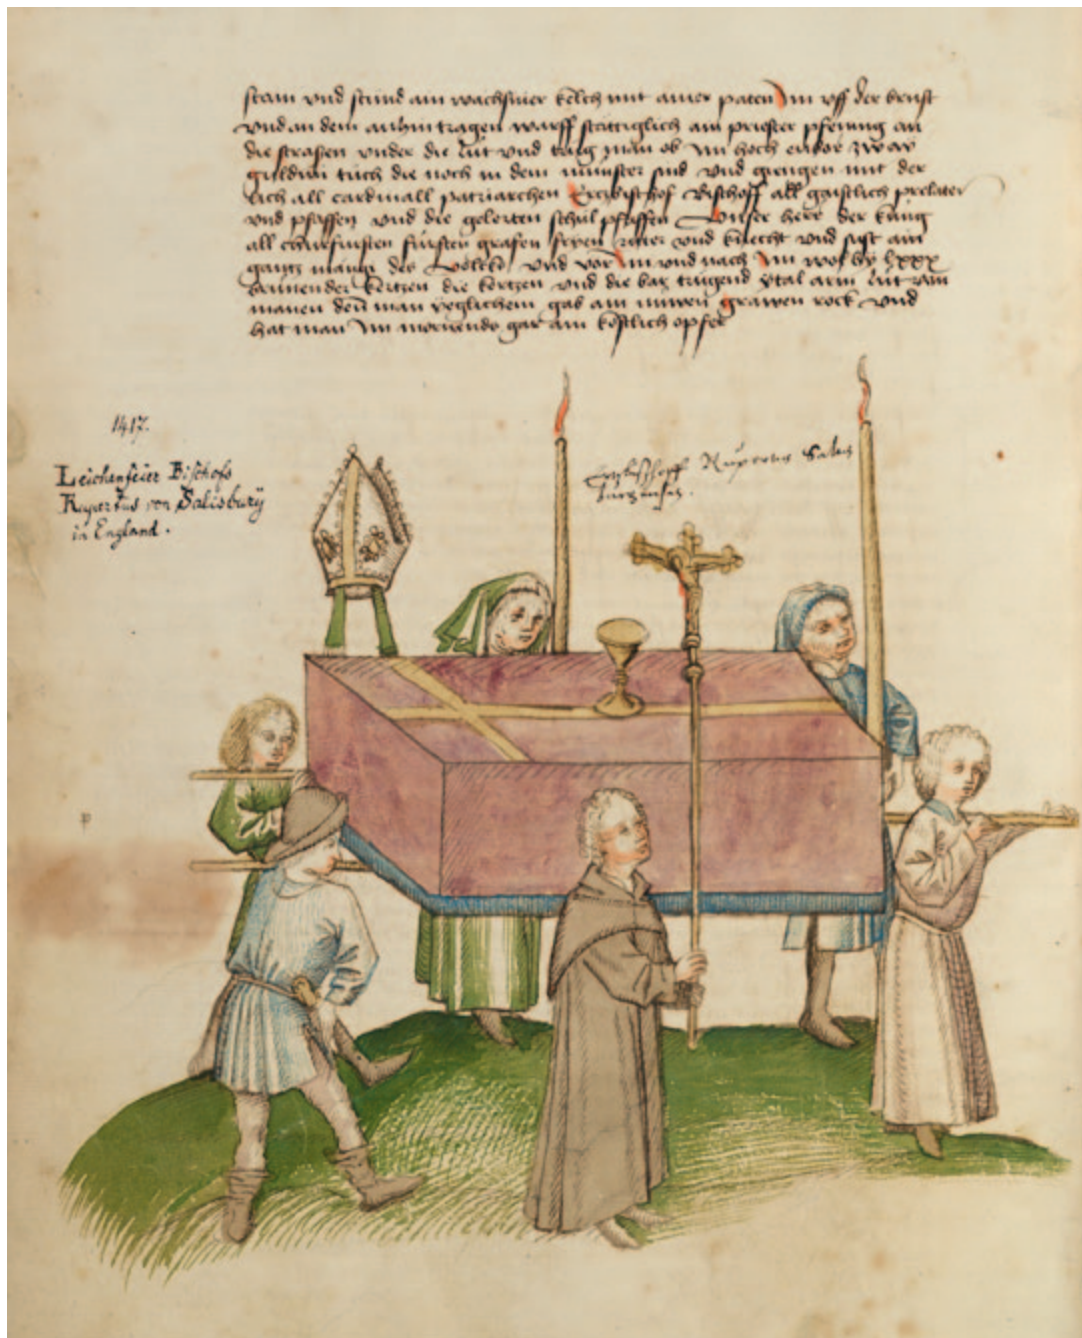 stain vnd stünd ain wachsiner kelch mit ainer paten Im vff der brust
vnd an dem anhin tragen warff stättiglich ain priester pfening an
die strassen vnder die lüt vnd trüg man ob Im hoch enbor zway
guldini tüch die noch in dem münster sind vnd giengen mit der
lich all cardinäll patriarchen Ertzbischof Bischoff all gaistlich prelaten
vnd pfaffen vnd die gelerten schül pfaffen Vnser herr der küng
all churfürsten fürsten grafen fryen ritter vnd knecht vnd sust ain
gantz mängi des Volcks vnd vor Im vnd nach Im wol by lxxx
brinnender kertzen die kertzen vnd die bar trügend ytal arm lüt
manen den man yeglichem gab ain nüwen grawen rock vnd
hat man Im mornends gar ain kostlich opfer
1417.
Leichenfeier Bischofs
Rupertus von Salisbury
in England.
Ertzbischoff Rupertus Salus